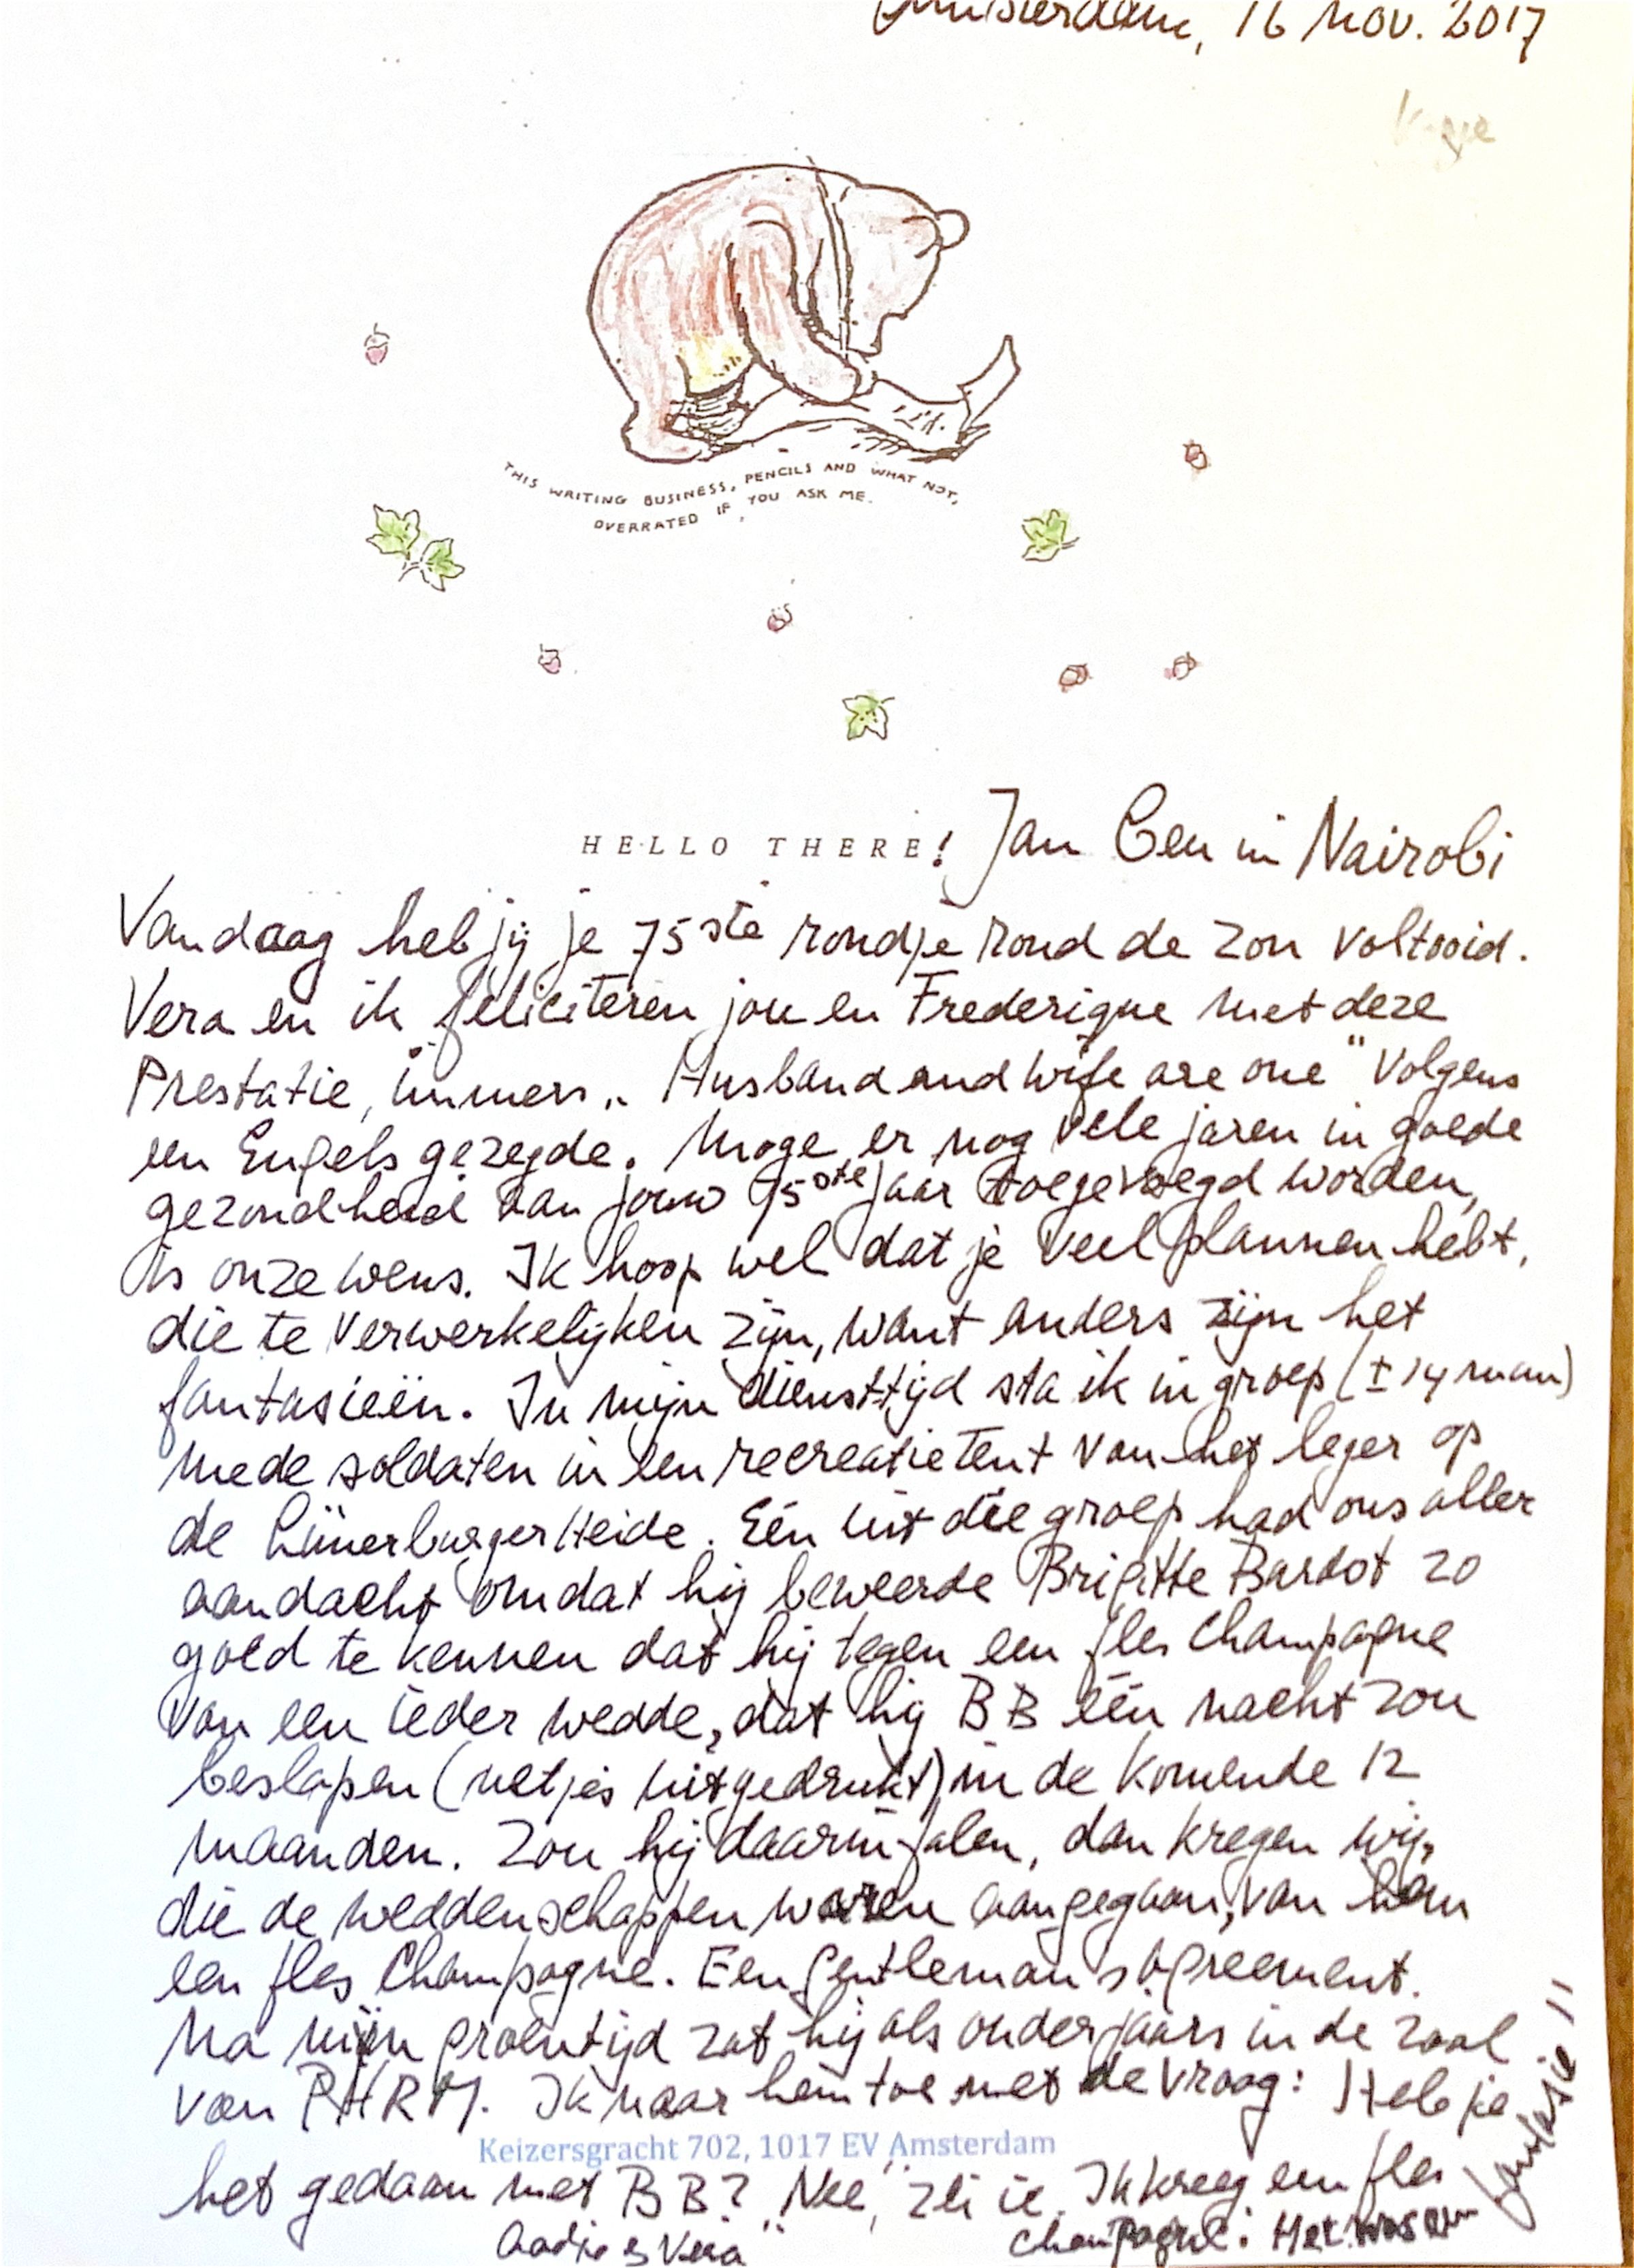 Amsterdam, 16 nov. 2017
THIS WRITING BUSINESS, PENCILS AND WHAT NOT,
OVERRATED IF YOU ASK ME.
HELLO THERE! Jan Ben in Nairobi
Vandaag heb jij je 75ste rondje rond de zon voltooid.
Vera en ik feliciteren jou en Frederique met deze
Prestatie, immers „Husband and wife are one" volgens
een Engels gezegde. Moge er nog vele jaren in goede
gezondheid aan jouw 75ste jaar toegevoegd worden,
is onze wens. Ik hoop wel dat je veel plannen hebt,
die te verwerkelijken zijn, want anders zijn het
fantasieën. In mijn diensttijd sta ik in groep (± 14 man)
mede soldaten in een recreatie tent van het leger op
de Lünerburger Heide. Eén uit die groep had ons aller
aandacht omdat hij beweerde Brigitte Bardot zo
goed te kennen dat hij tegen een fles champagne
van een ieder wedde, dat hij BB één nacht zou
beslapen (netjes uitgedrukt) in de komende 12
maanden. Zou hij daarin falen, dan kregen wij,
die de weddenschappen waren aangegaan, van hem
een fles Champagne. Een gentleman's agreement.
Na mijn groentijd zat hij als ouderjaars in de zaal
van PHRM. Ik naar hem toe met de vraag: Heb je
Keizersgracht 702, 1017 EV Amsterdam
het gedaan met BB? „Nee", zei ie. Ik kreeg een fles
Champagne: Het was een
fantasie!!
Aadje & Vera